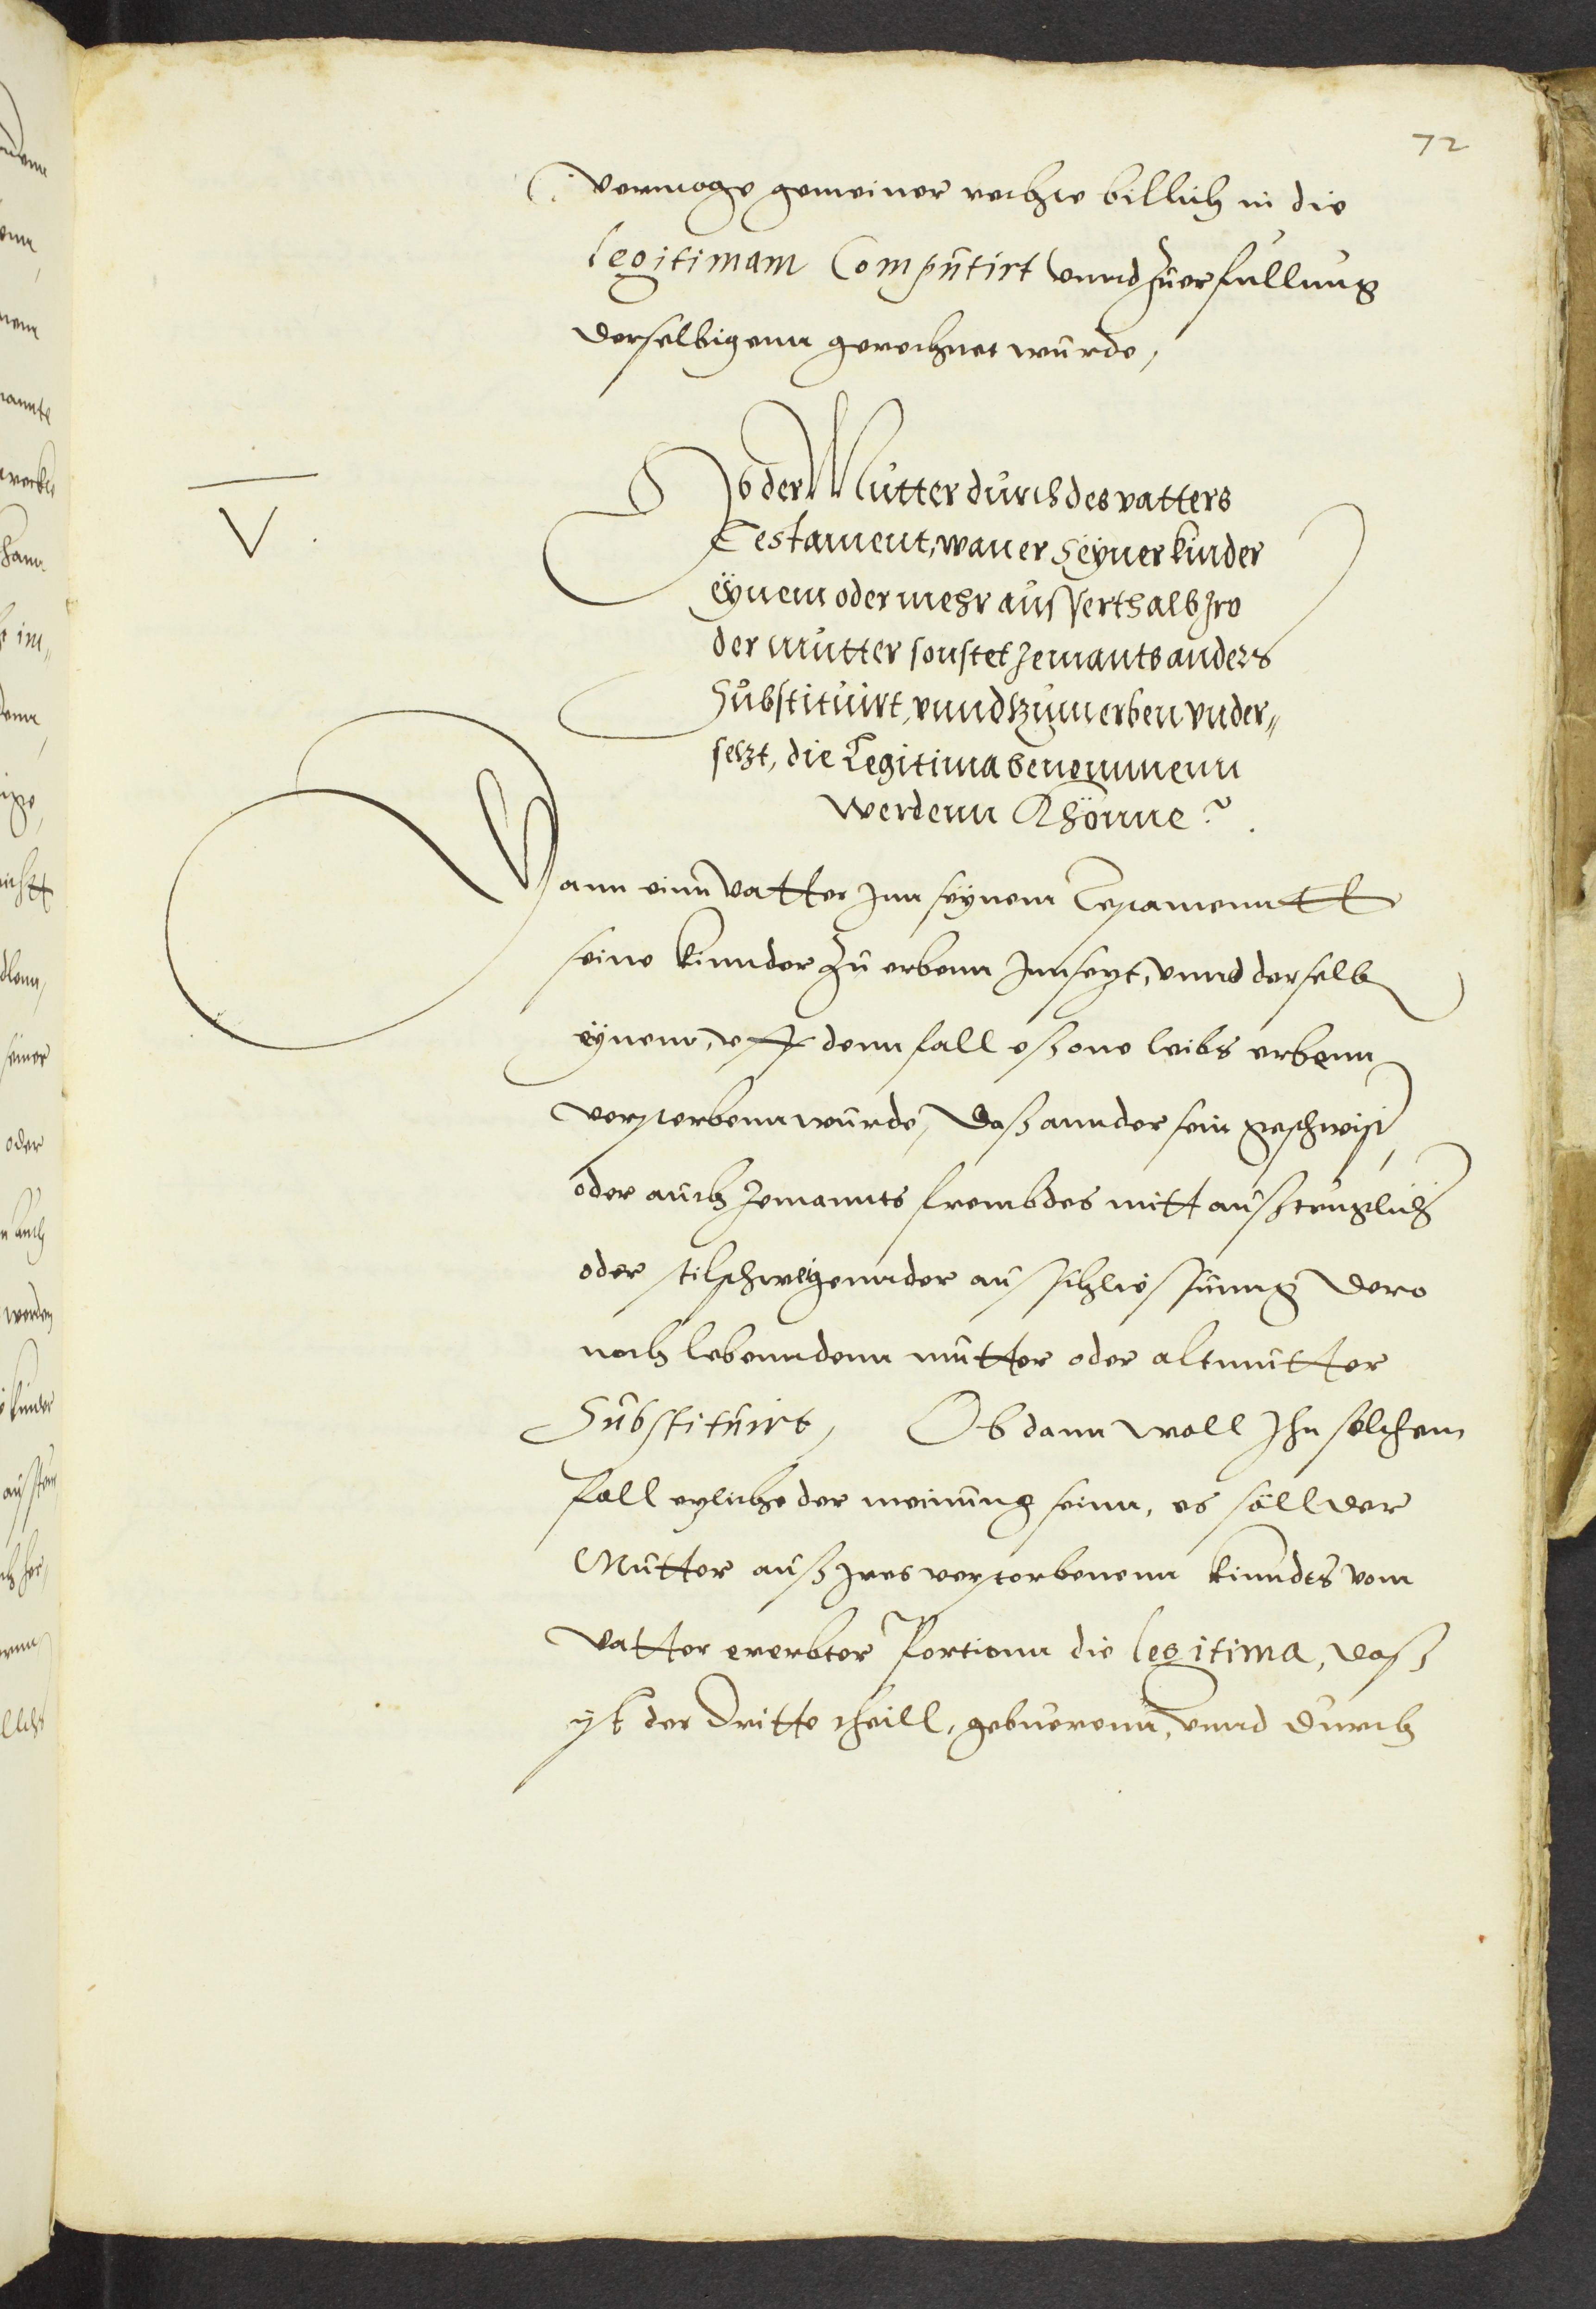 72
vermoge gemeiner rechte billich in die
legitimam Computirt vnnd zuerfullung
derselbigenn gerechnet wurde,
V.
Ob der Mutter durch des vatters
Testament, wan er seyner kinder
eynem oder mehr ausserthalb iro
der mutter sonstet jemants anders
Substituirt, vnnd tzum erben vnder„
setzt, die Legitima benommenn
werdenn khönne?
Wann einn vatter jnn seynem Testamenntt
seine kinnder zu erbenn jnnsetzt, vnnd derselb
eynem, vff denn fall es one leibs erbenn
versterbenn wurde, das annder sein geschwist,
oder auch jemannts frembdes mitt außtruglich
oder stilschweigennder ausschliessunng dero
noch lebenndenn mutter oder altmutter
Substituirt, Ob dann woll Ihn solchem
fall etzliche der meinung seinn, es söll der
Mutter auß jres verstorbenenn kinndts vom
vatter ererbter Portionn die legitima, daß
ist der dritte theill, gebuerenn, vnnd durch